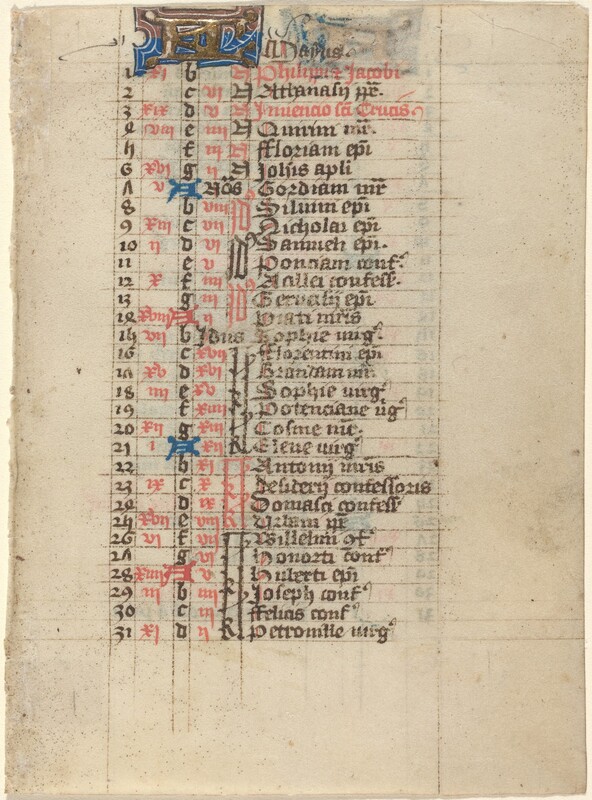 KL Maius.
1 xi b A Philippi et Jacobi
2 c vi A Athanasij pp̄e.
3 xix d v A Inuencio sc̄i Crucis
4 viii e iiii A Quirini mr̄.
5 f iii A ffloriani ep̄i
6 xvi g ii A Joh̄is apli
7 v A Nōs Gordiani mr̄
8 b viii Siluini ep̄i
9 xiii c vii Nicholai ep̄i
10 ii d vi Samueli ep̄i.
11 e v Ponciani conf.
12 x f iiii Acillei confess.
13 g iii Geruasij ep̄i
14 xviii A ii mr̄is
15 vii b Idus Sophie uirg
16 c xvii fflorentini ep̄i
17 xv d xvi Brandani mr̄.
18 iiii e xv Sophie uirg
19 f xiiii Potenciane ūg
20 xii g xiii Cosme mr̄.
21 i A Elene uirg
22 b xi Antonij mr̄is
23 ix c x desiderij confessoris
24 d ix Donaci confess
25 xvii e viii Urbani pp̄
26 vi f vii Willelmi
27 g vi Honorti conf
28 xiiii A v Huberti ep̄i
29 iii b iiii Joseph conf
30 c iii ffelicis conf
31 xi d ii Petronille uirg